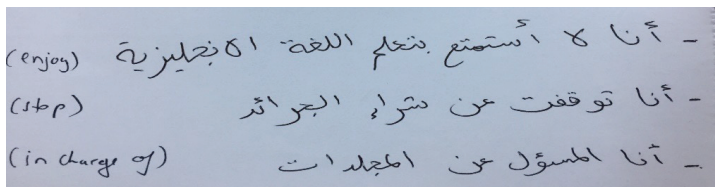 - أنا لا أستمتع بتعلم اللغة الانجليزية (enjoy)
- أنا توقفت عن شراء الجرائد (stop)
- أنا المسؤل عن المجلدات (in charge of)